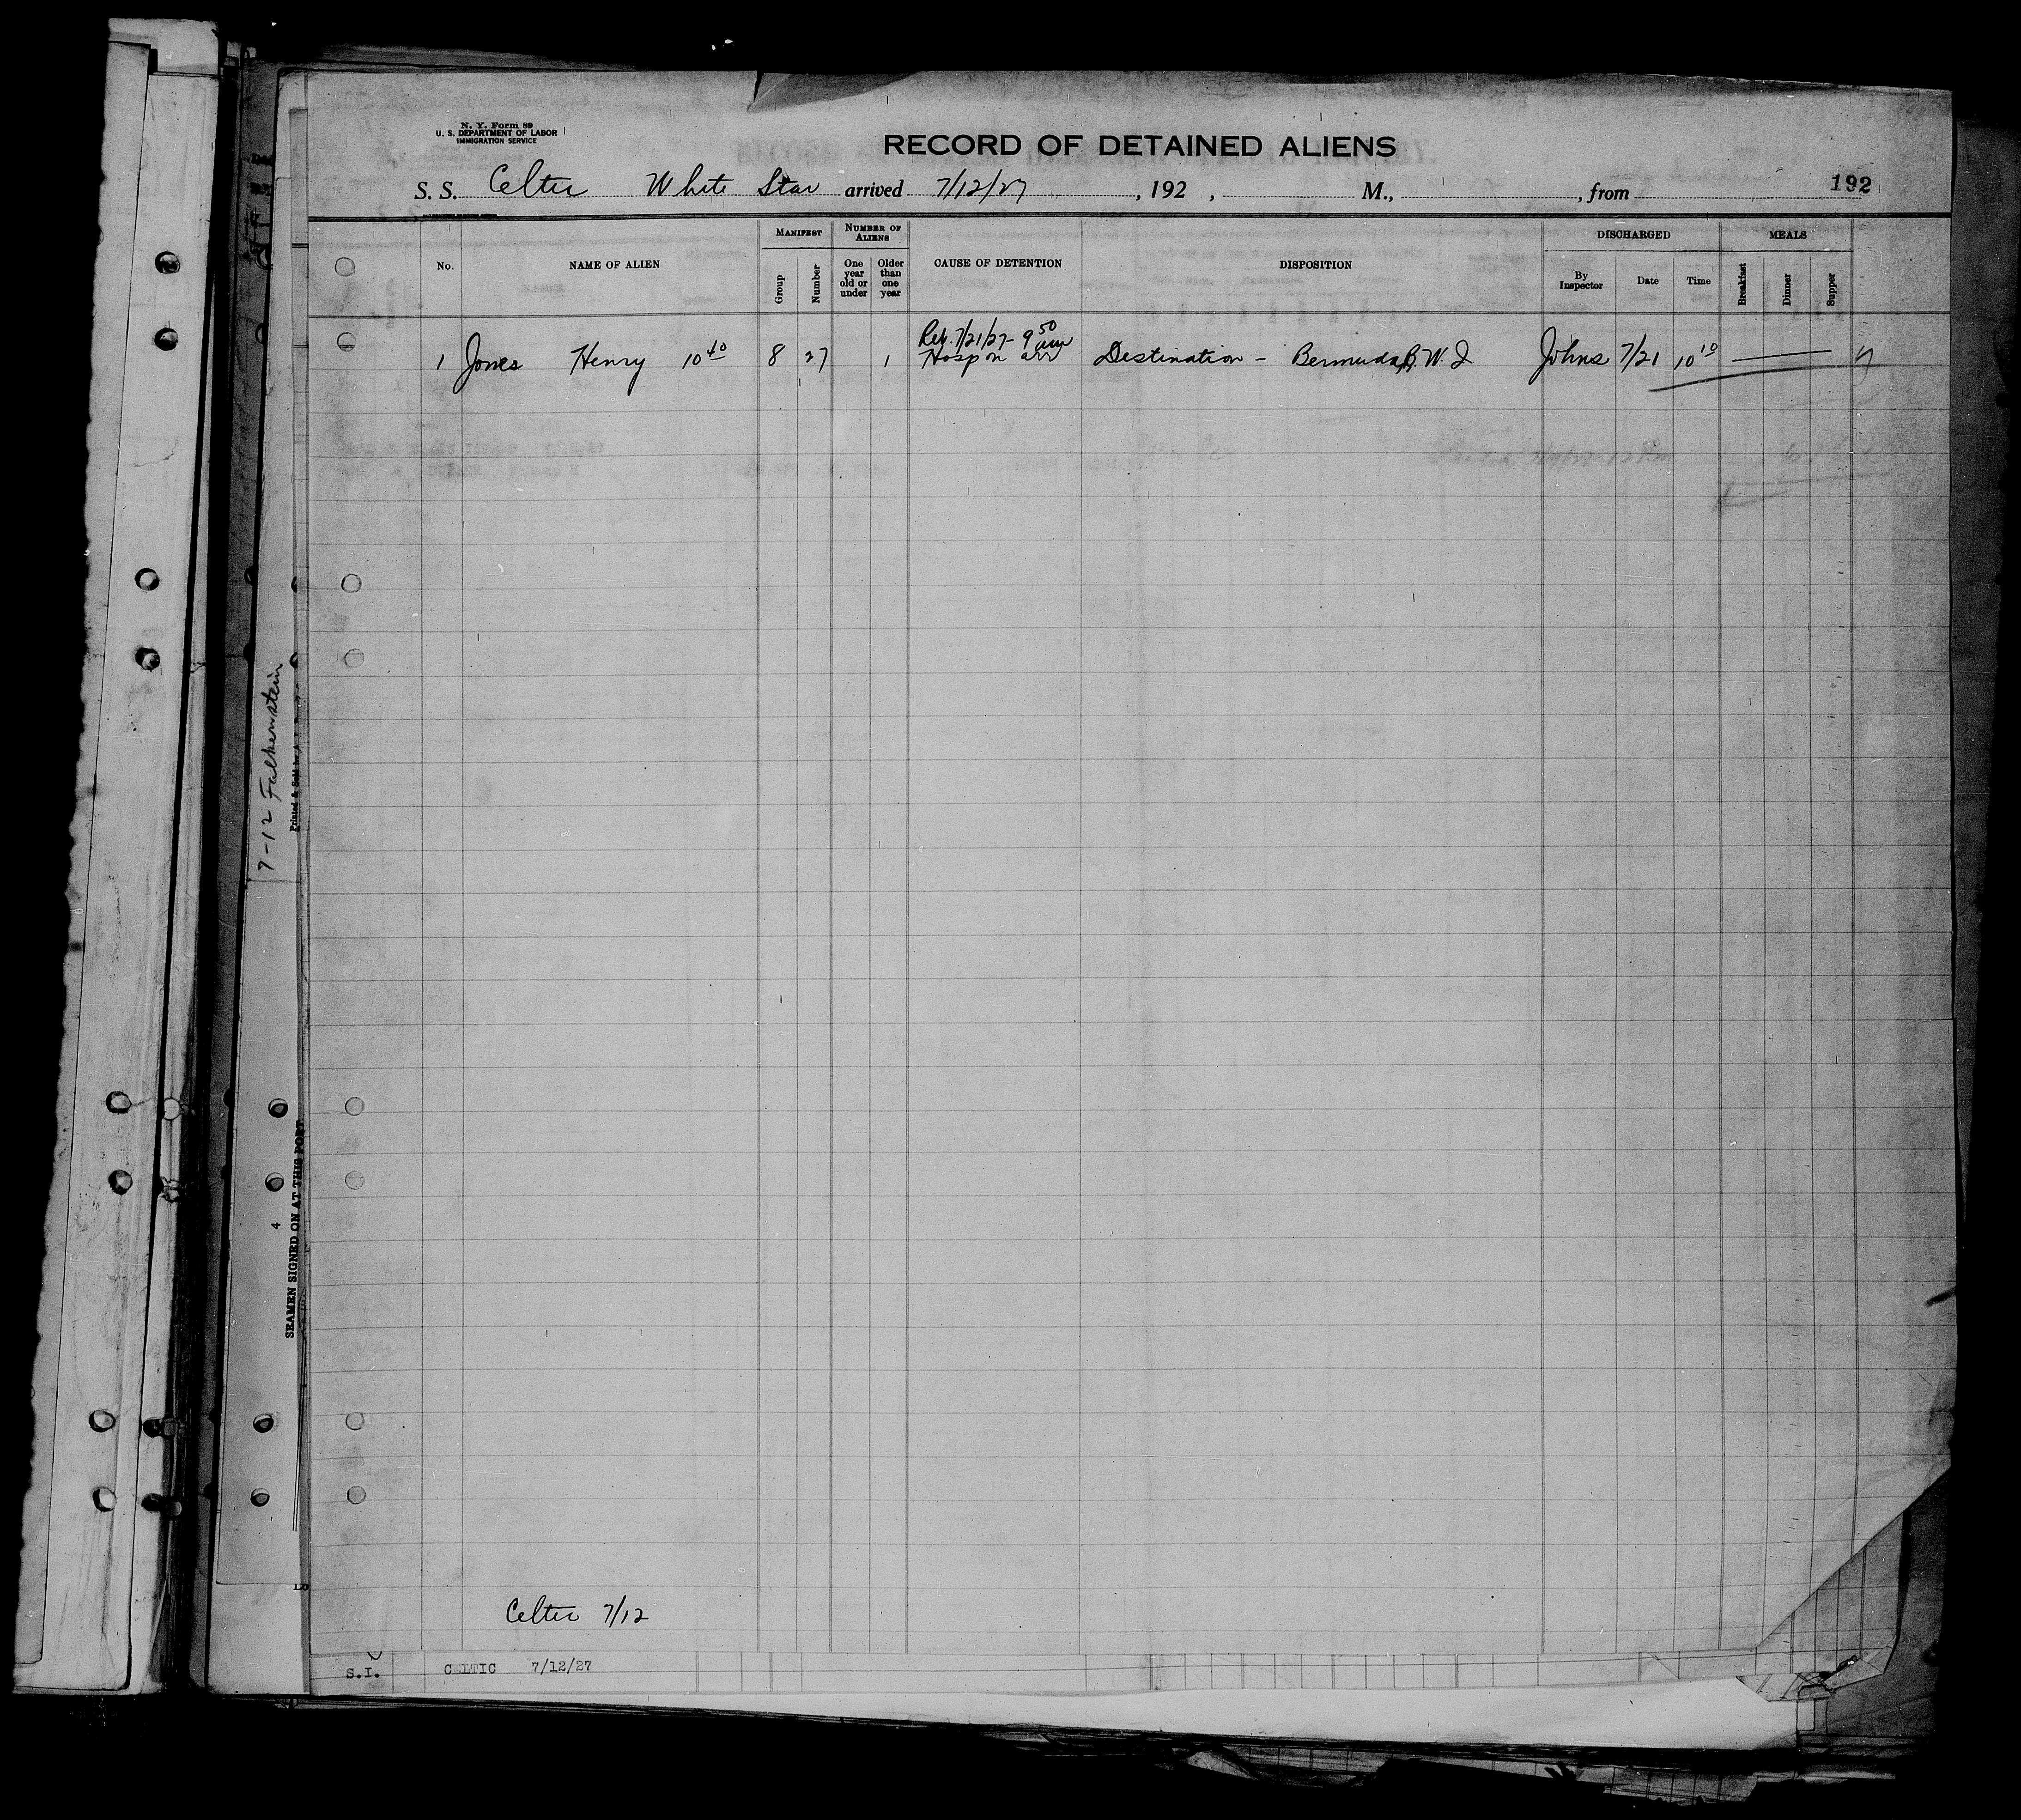 N. Y. Form 89
U. S. DEPARTMENT OF LABOR
IMMIGRATION SERVICE
RECORD OF DETAINED ALIENS
192
S. S. Celtic White Star arrived 7/12/27, 192 , M., , from
No.
NAME OF ALIEN
MANIFEST
Group
Number
NUMBER OF ALIENS
One year old or under
Older than one year
CAUSE OF DETENTION
DISPOSITION
DISCHARGED
By Inspector
Date
Time
MEALS
Breakfast
Dinner
Supper
7/21/27 9 50 am
1 Jones Henry 10 40 8 27 1 Hosp on arr Destination - Bermuda, B. W. I Johns 7/21 10 10
7-12 Falkenstein
SEAMEN SIGNED ON AT THIS PORT
4
Celtic 7/12
S.I. CELTIC 7/12/27